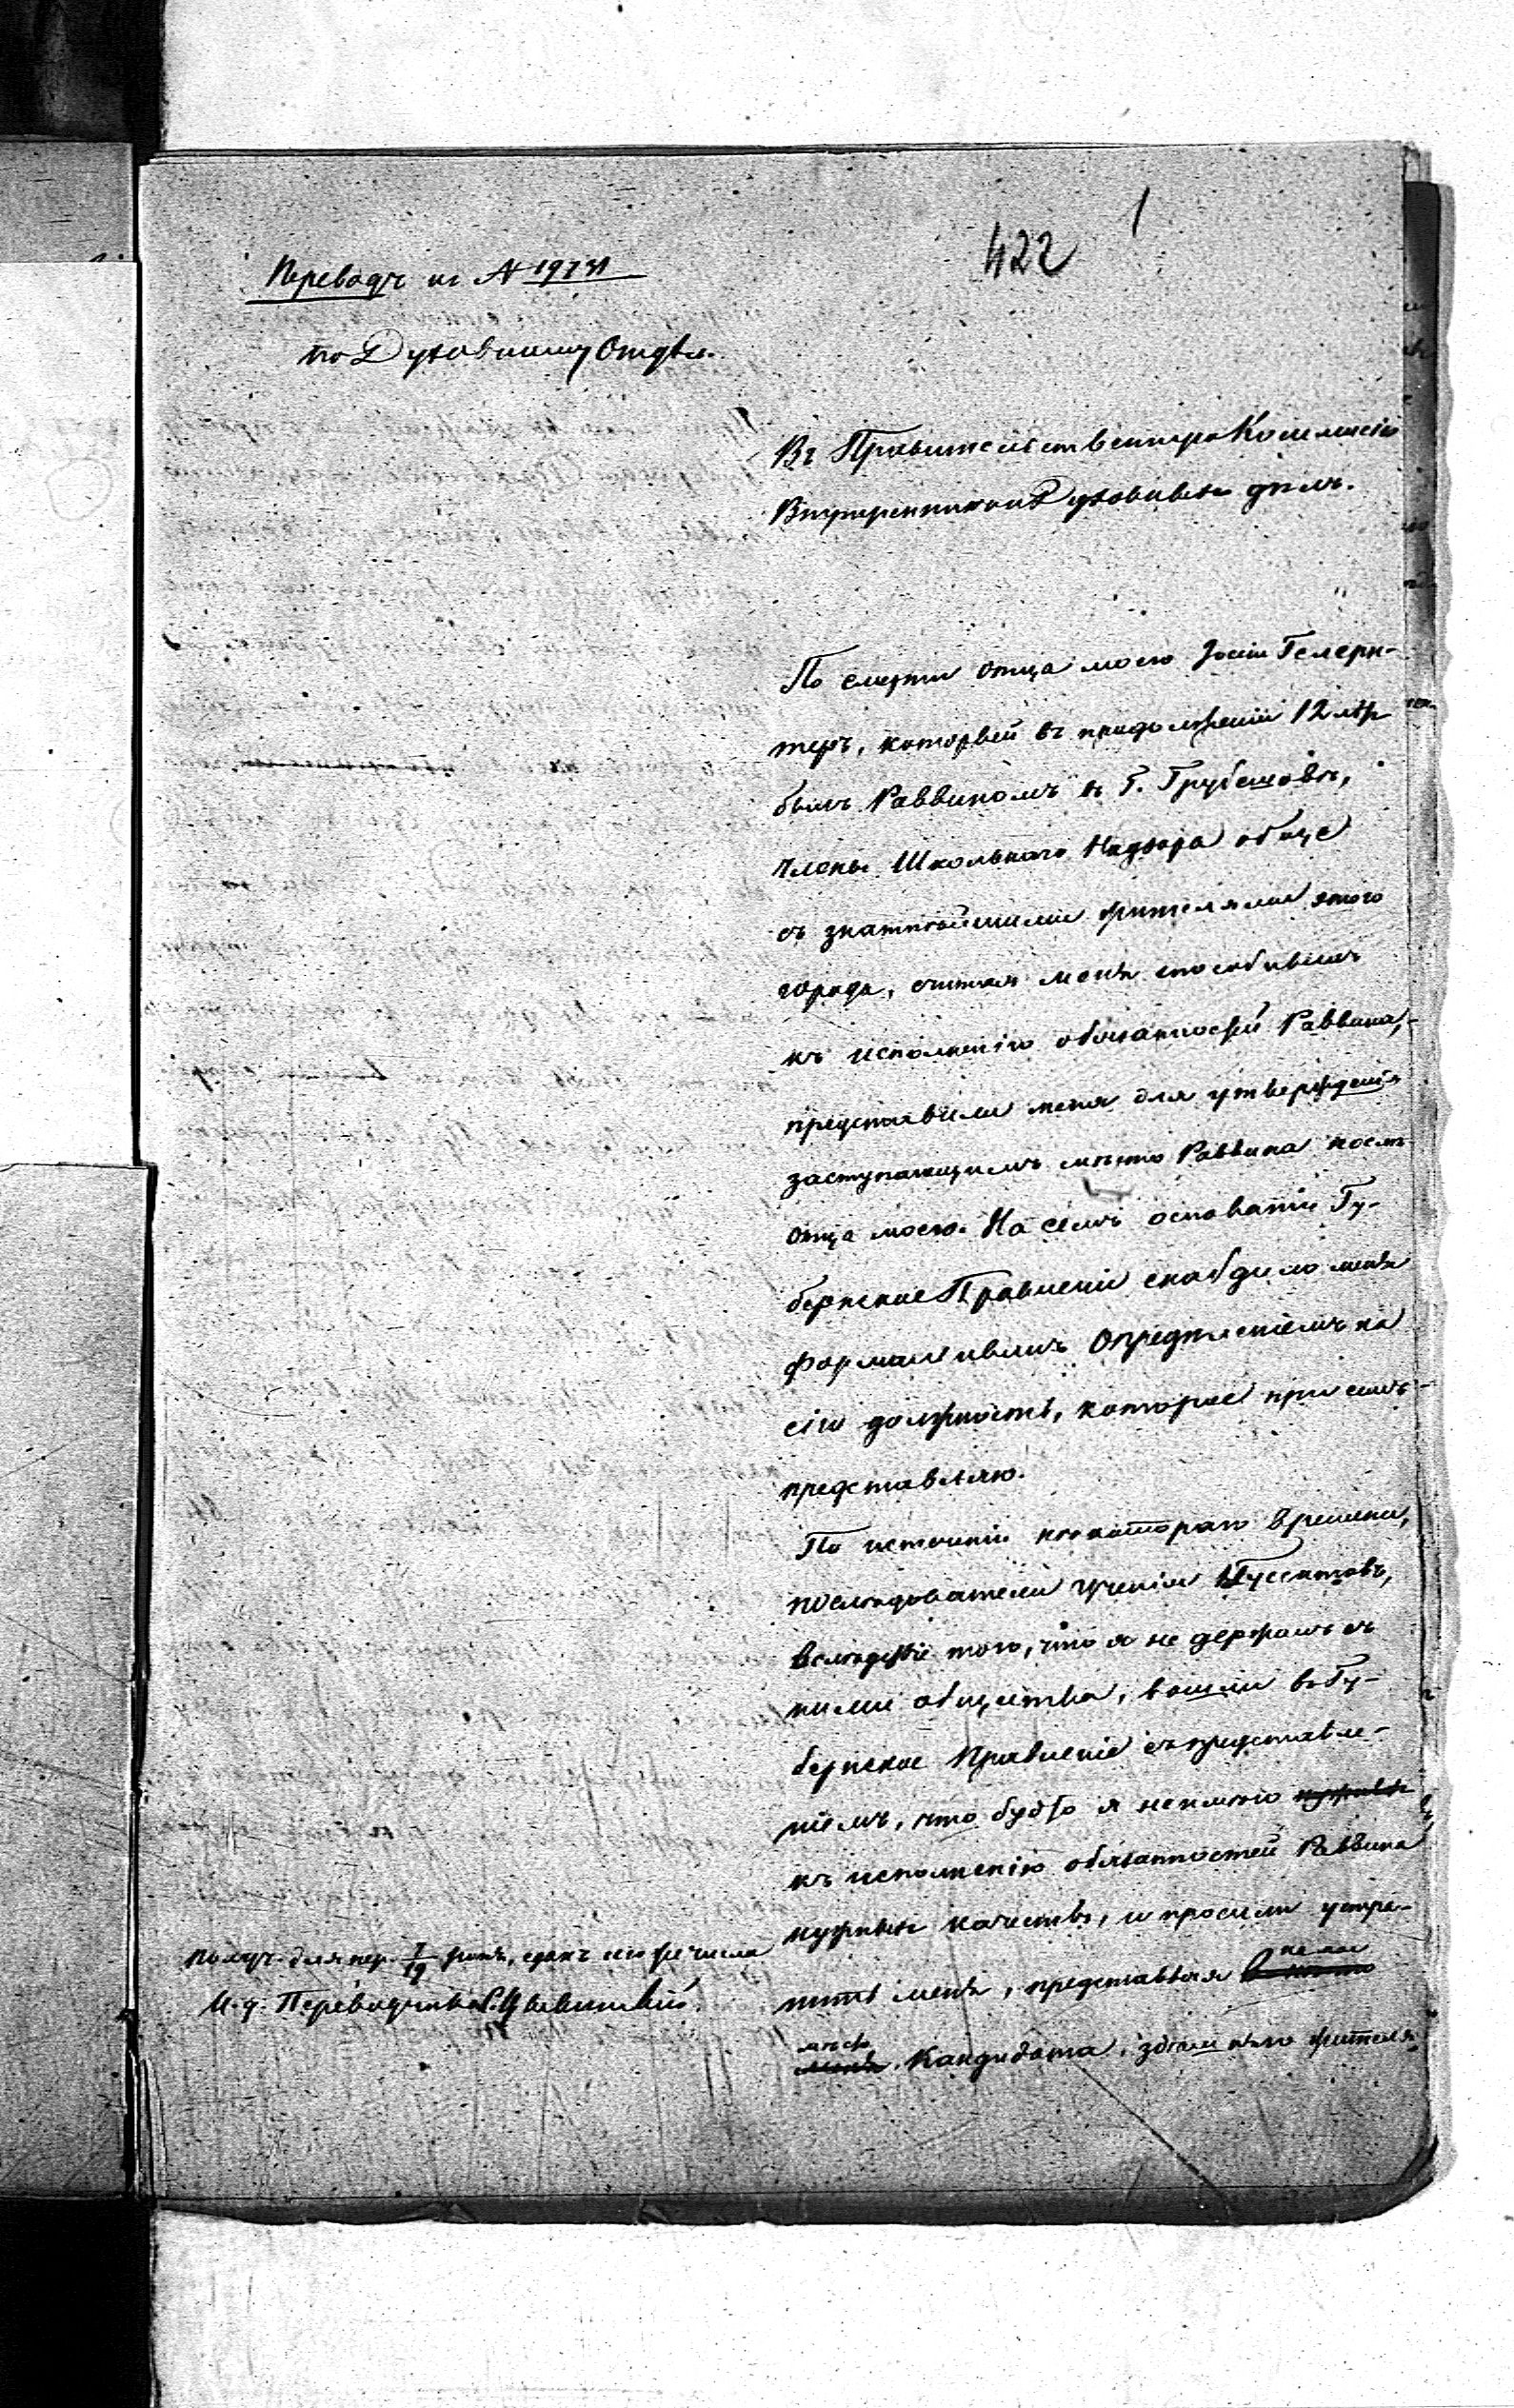 422
1
Переводъ къ № 19731
по Духовному Отдѣл.
Въ Правительственную Коммисію
Внутреннихъ и Духовныхъ дѣлъ.
По смерти отца моего Іосіи Гелерн-
теръ, который въ продолженіи 12 лѣтъ
былъ Раввиномъ въ Г. Грубешовѣ,
Члены Школьнаго Надзора обще
съ знатнѣйшими жителями этого
города, считая меня способнымъ
къ исполненію обязанностей Раввина,
представили меня для утвержденія
заступающимъ мѣсто Раввина послѣ
отца моего. На семъ основаніи Гу-
бернское Правленіе снабдило меня
формальнымъ Опредѣленіемъ на
сію должность, которое при семъ
представляю.
По истеченіи нѣкотораго времени,
послѣдователи ученія Гусситовъ,
вслѣдствіе того, что я не держалъ съ
ними общества, вошли въ Гу-
бернское Правленіе съ представле-
ніемъ, что будто я не имѣю нужныхъ
къ исполненію обязанностей Раввина
нужныхъ качествъ, и просили устра-
нить меня, представляя на мое
мѣсто Кандидата, здѣшняго жителя
Получ. для пер. 7/19 сдан. того же числа
И. д. Переводчика